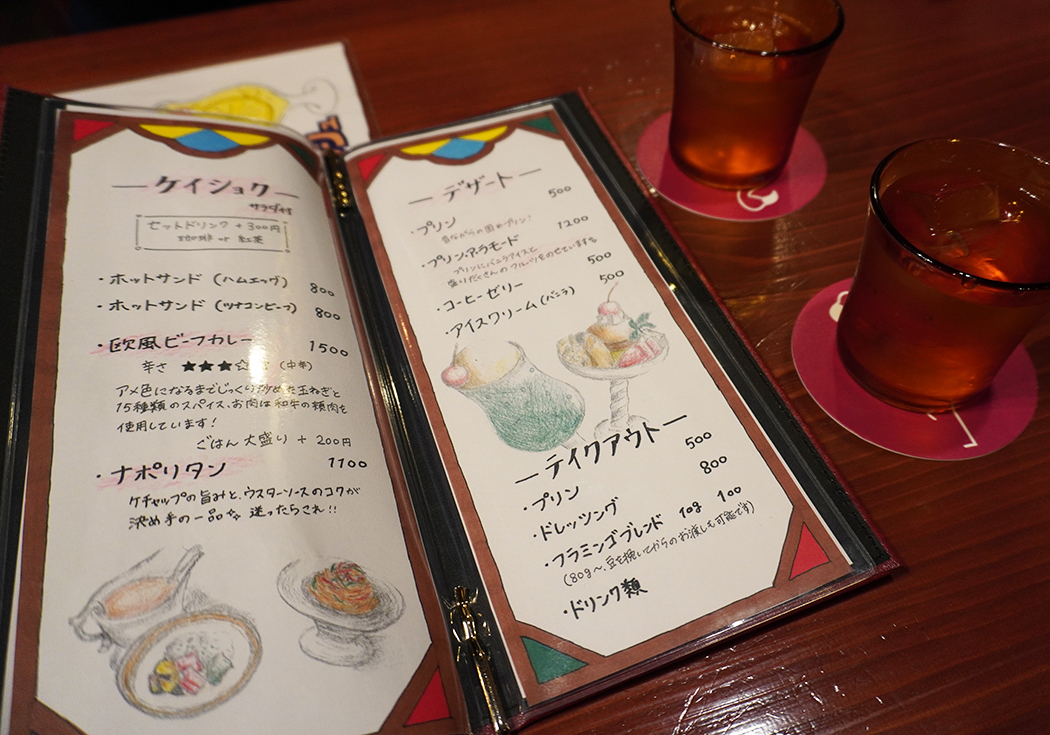 ケイショク
サラダ付
セットドリンク + 300円
珈琲 or 紅茶
・ホットサンド (ハムエッグ) 800
・ホットサンド (ツナコンビーフ) 800
・欧風ビーフカレー 1500
辛さ ★★★☆ (中辛)
アメ色になるまでじっくり炒めた玉ねぎと
15種類のスパイス、お肉は和牛の頬肉を
使用しています!
ごはん大盛り + 200円
・ナポリタン 1100
ケチャップの旨みと、ウスターソースのコクが
決め手の一品 迷ったらこれ!!
デザート
・プリン 500
昔ながらの固めプリン!
・プリン・ア・ラモード 1200
プリンにバニラアイスと
盛りだくさんのフルーツをのせています
・コーヒーゼリー 500
・アイスクリーム (バニラ) 500
テイクアウト
・プリン 500
・ドレッシング 800
・フラミンゴブレンド 10g 100
(80g〜、豆を挽いてからのお渡しも可能です)
・ドリンク類